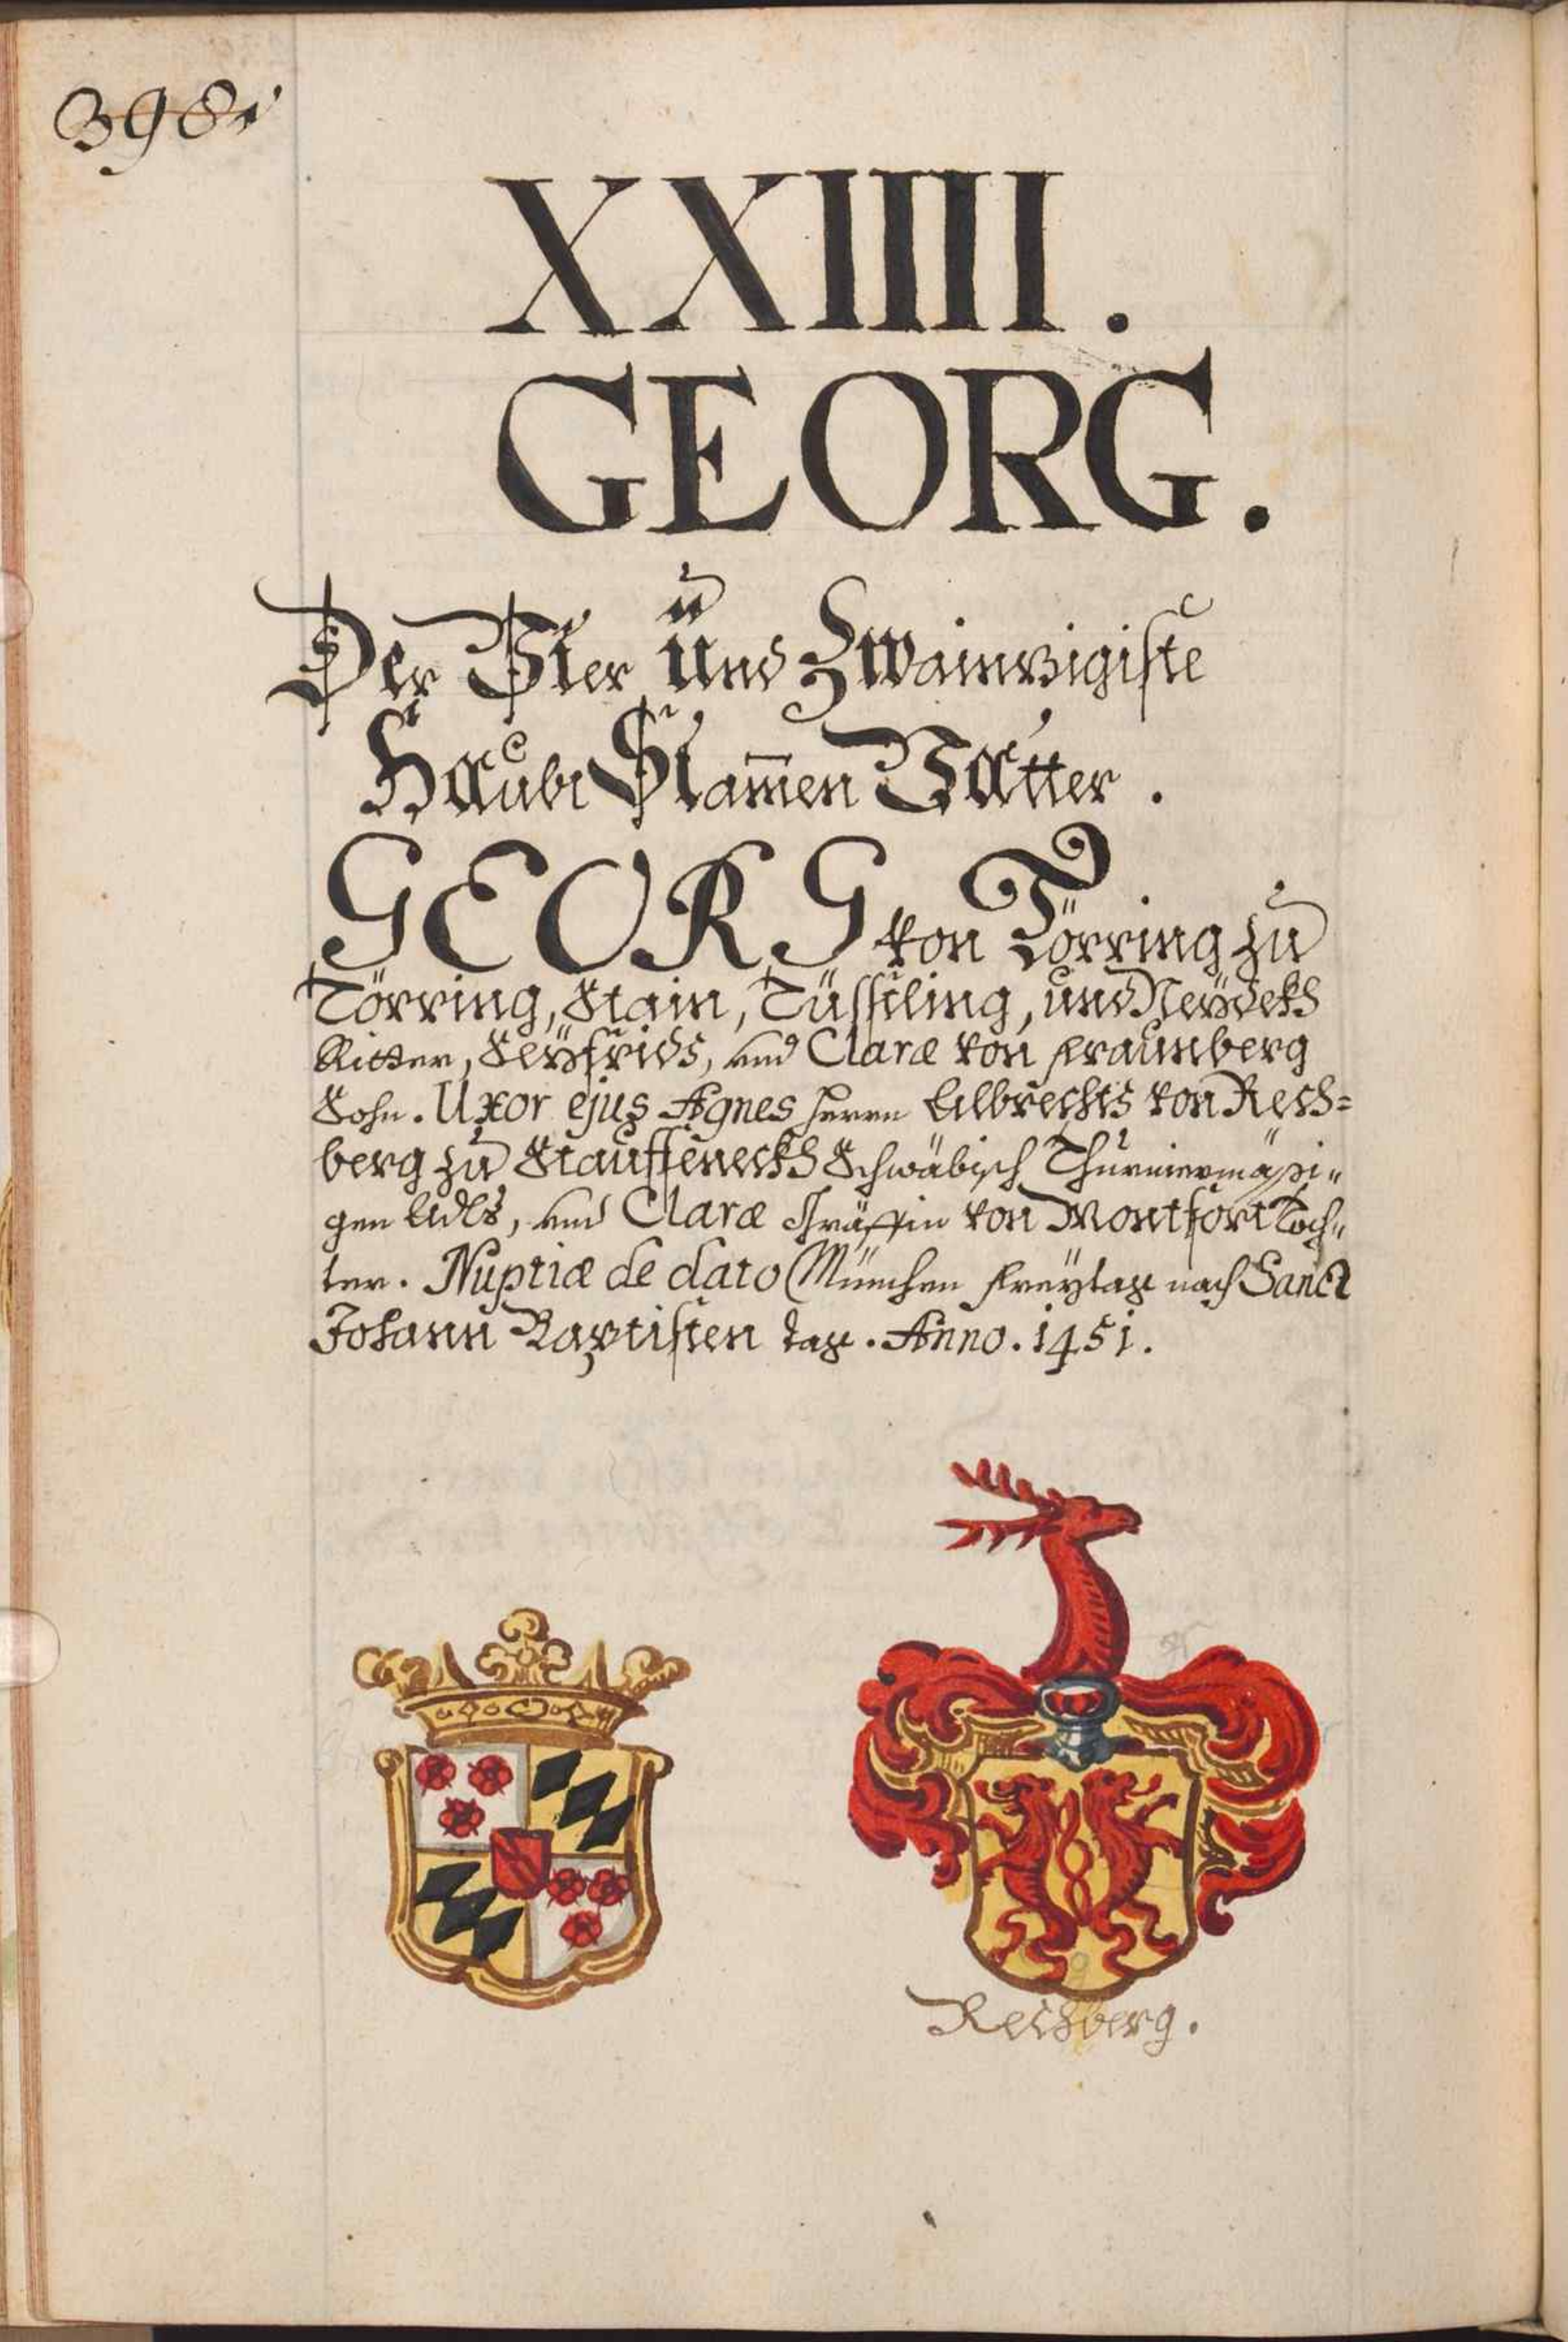 398.
XXIIII.
GEORG.
Der Vier und Zwainzigiste
Haubt Stam̄en Vatter.
GEORG von Törring zu
Törring, Stain, Tüssling, und Neydekh
Ritter, Seyfrids, und Claræ von Fraunberg
Sohn. Uxor ejus Agnes Herrn Albrechts von Rech=
berg zu Stauffeneckh Schwäbisch Thurniermäßi=
gen Adls, und Claræ Gräffin von Montfort Toch=
ter. Nuptiæ de dato München Freytag nach Sanct
Johann Baptisten tag. Anno. 1451.
Rechberg.